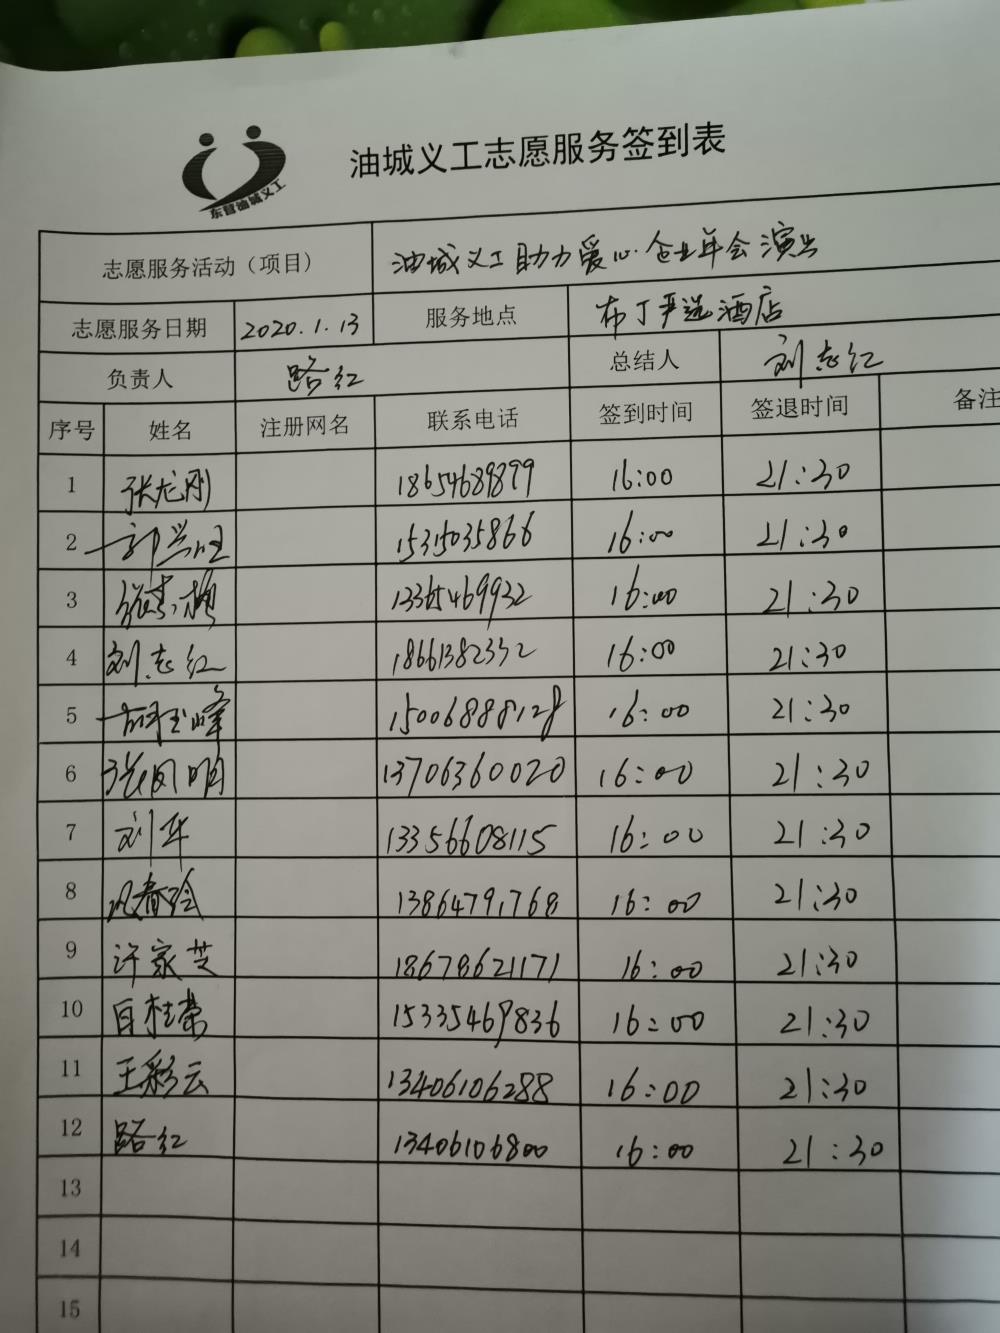 东营油城义工
油城义工志愿服务签到表
志愿服务活动（项目） 油城义工助力爱心企业年会演出
志愿服务日期 2020.1.13 服务地点 布丁严选酒店
负责人 路红 总结人 刘志红
序号 姓名 注册网名 联系电话 签到时间 签退时间 备注
1 张龙刚 18654689899 16:00 21:30
2 郭兴旺 15315035866 16:00 21:30
3 13365469932 16:00 21:30
4 刘志红 18661382332 16:00 21:30
5 胡玉峰 15006888128 16:00 21:30
6 张凤明 13706360020 16:00 21:30
7 刘华 13356608115 16:00 21:30
8 13864791768 16:00 21:30
9 许家芝 18678621171 16:00 21:30
10 白桂荣 15335469836 16:00 21:30
11 王彩云 13406106288 16:00 21:30
12 路红 13406106800 16:00 21:30
13
14
15